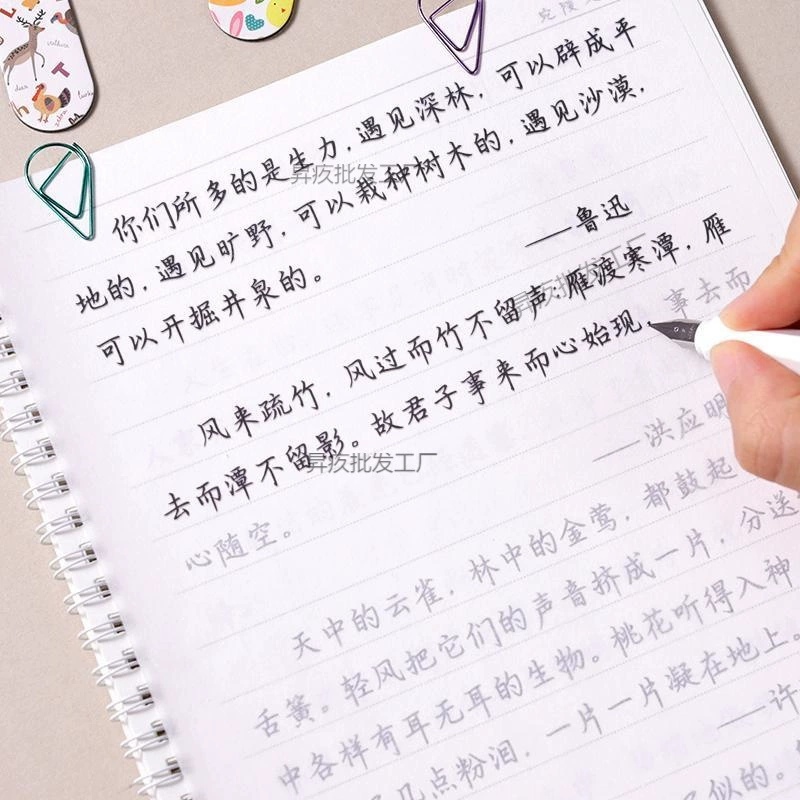 你们所多的是生力,遇见深林,可以辟成平
地的,遇见旷野,可以栽种树木的,遇见沙漠,
可以开掘井泉的。
——鲁迅
风来疏竹,风过而竹不留声;雁渡寒潭,雁
去而潭不留影。故君子事来而心始现,事去而
心随空。
——洪应明
天中的云雀,林中的金莺,都鼓起
舌簧。轻风把它们的声音挤成一片,分送
中各样有耳无耳的生物。桃花听得入神
几点粉泪,一片一片凝在地上。
——许
似的。
昇疚批发工厂
昇疚批发工厂
昇疚批发工厂